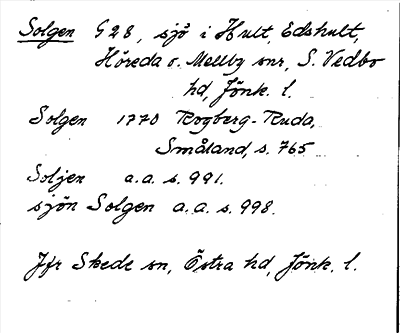 Solgen G28, sjö i Hult, Edshult,
Höreda o. Mellby snr, S. Vedbo
hd, Jönk. l.
Solgen 1770 Rogberg-Ruda,
Småland, s. 765
Soljen a.a. s. 991.
sjön Solgen a.a. s. 998.
Jfr Skede sn, Östra hd, Jönk. l.